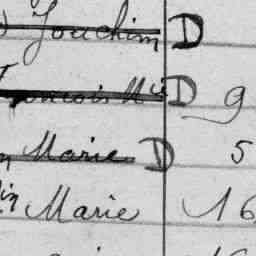 Joachim D
François Mie D 9
Marie D 5
Marie 16